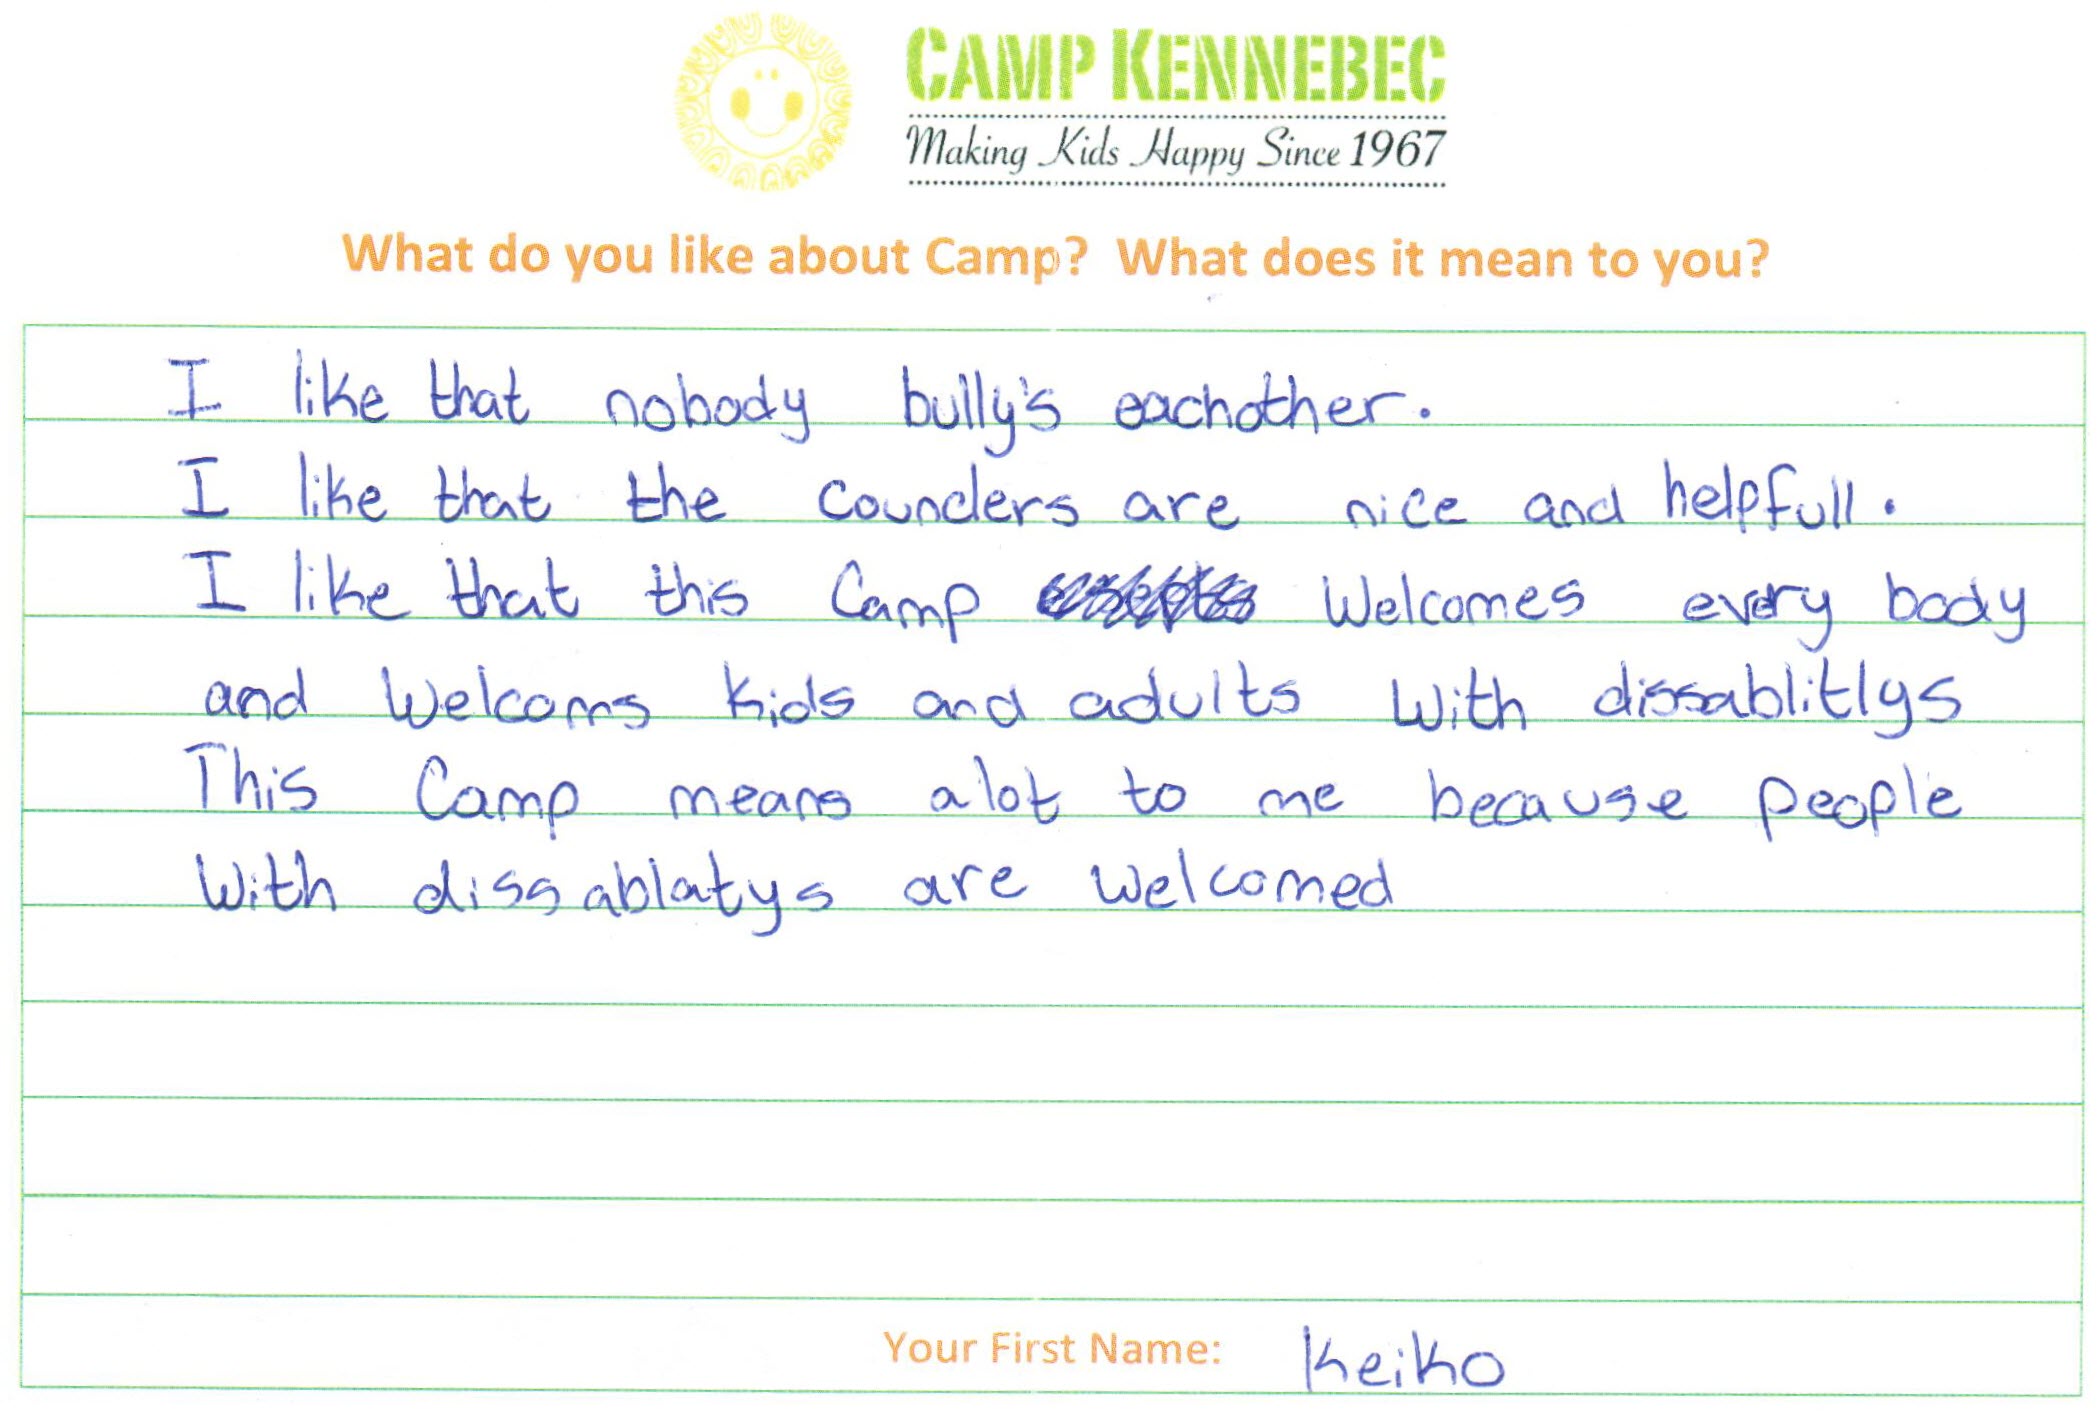 CAMP KENNEBEC
Making Kids Happy Since 1967
What do you like about Camp? What does it mean to you?
I like that nobody bully's eachother.
I like that the counclers are nice and helpfull.
I like that this Camp Welcomes every body
and Welcoms kids and adults With dissablitlys
This Camp means alot to me because people
With dissablatys are Welcomed
Your First Name: Keiko